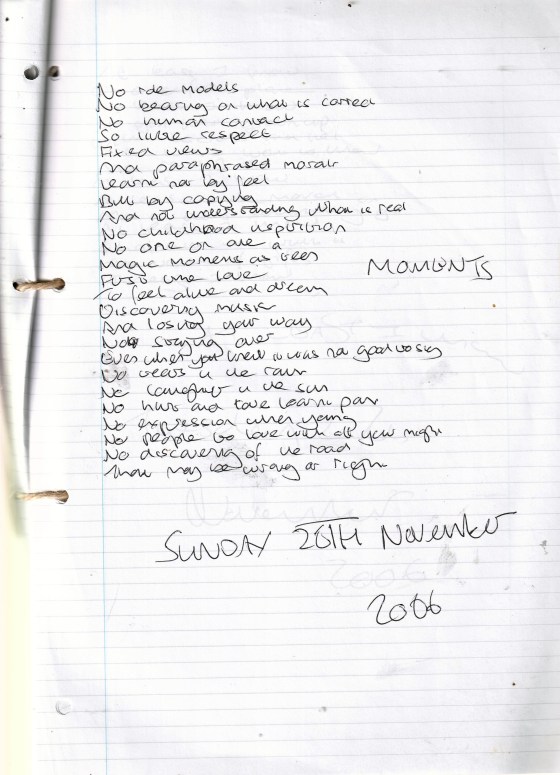 No role models
No bearing on what is correct
No human contact
So little respect
Fixed views
And paraphrased morals
Learn not by feel
But by copying
And not understanding what is real
No childhood inspiration
No one on
Magic moments as teens
MOMENTS
First time love
To feel alive and dream
Discovering music
And losing your way
Not staying over
Even when you knew it was not good to stay
No tears in the rain
No laughter in the sun
No hurt and love learnt pain
No expression when young
No people to love with all your might
No discovering of the road
That may be wrong or right
SUNDAY 26TH November
2006